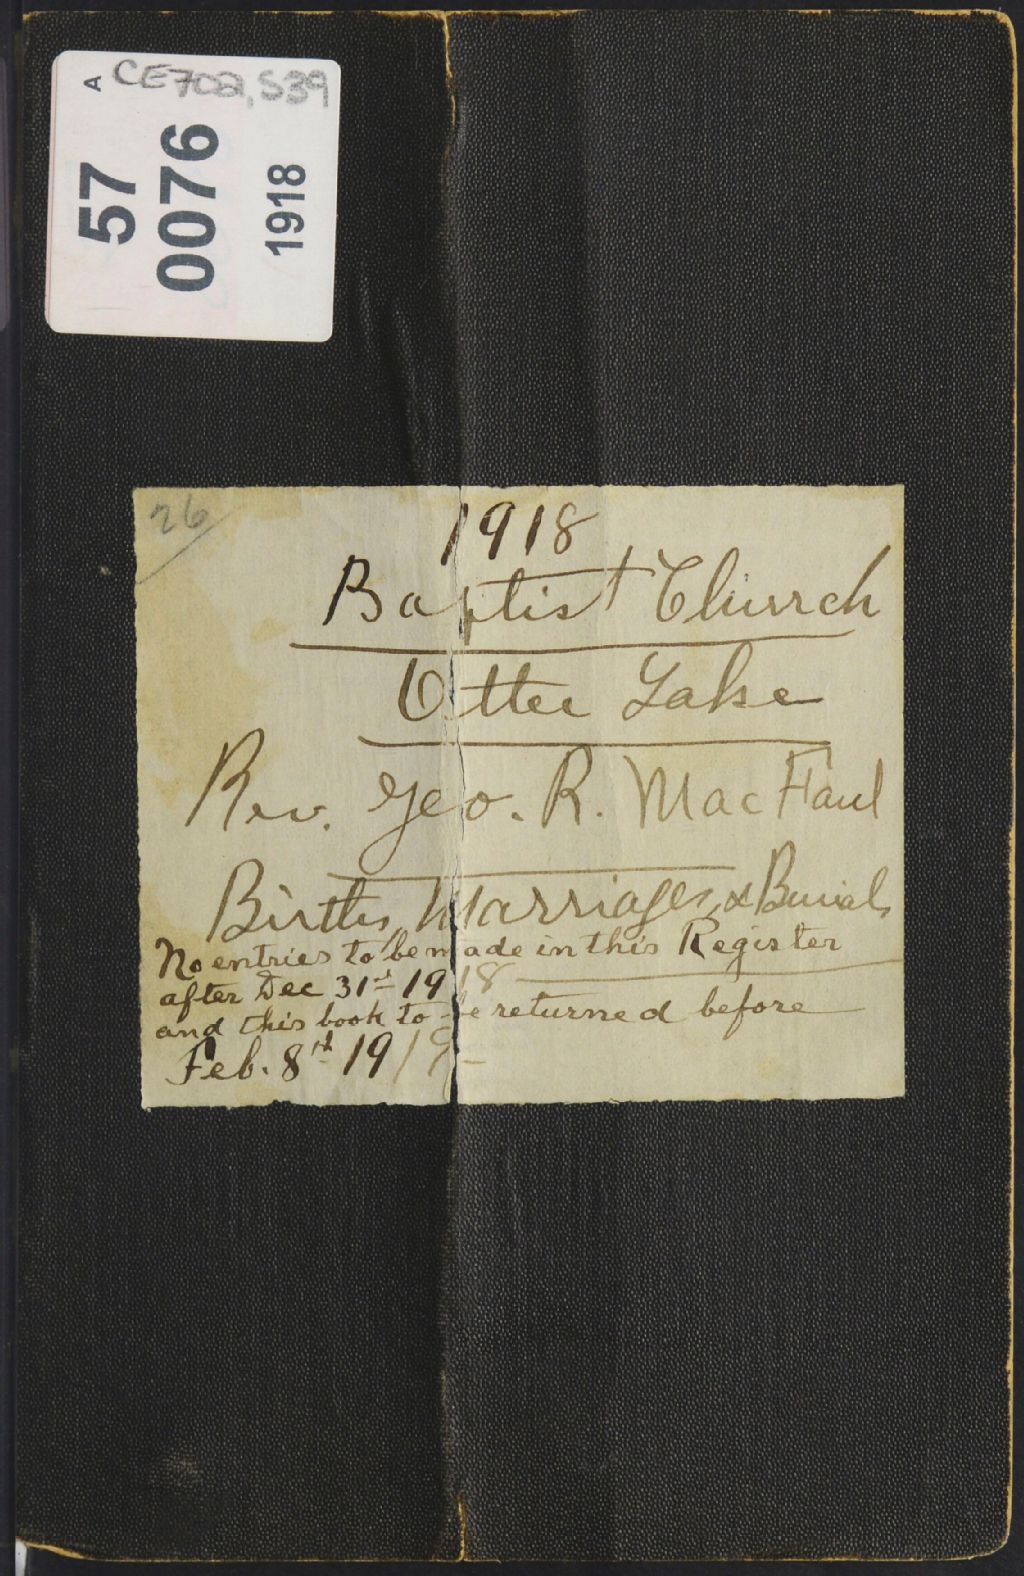 A CE702, S39
57
0076
1918
26
1918
Baptist Church
Otter Lake
Rev. Geo. R. MacFaul
Births, Marriages, & Burials
No entries to be made in this Register
after Dec 31st 1918
and this book to be returned before
Feb. 8th 1919